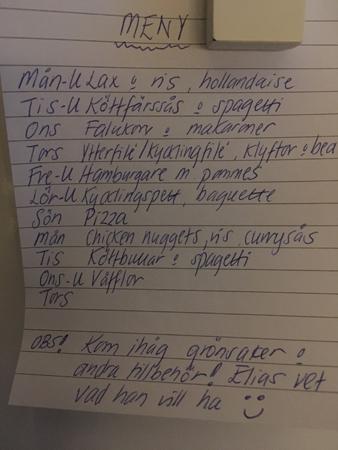 MENY
Mån-U Lax o ris, hollandaise
Tis-U Köttfärssås o spagetti
Ons Falukorv o makaroner
Tors Ytterfilé/kycklingfilé, klyftor o bea
Fre-U Hamburgare m pommes
Lör-U Kycklingspett, baguette
Sön Pizza
Mån Chicken nuggets, ris, currysås
Tis Köttbullar o spagetti
Ons-U Våfflor
Tors
OBS! Kom ihåg grönsaker o
andra tillbehör! Elias vet
vad han vill ha